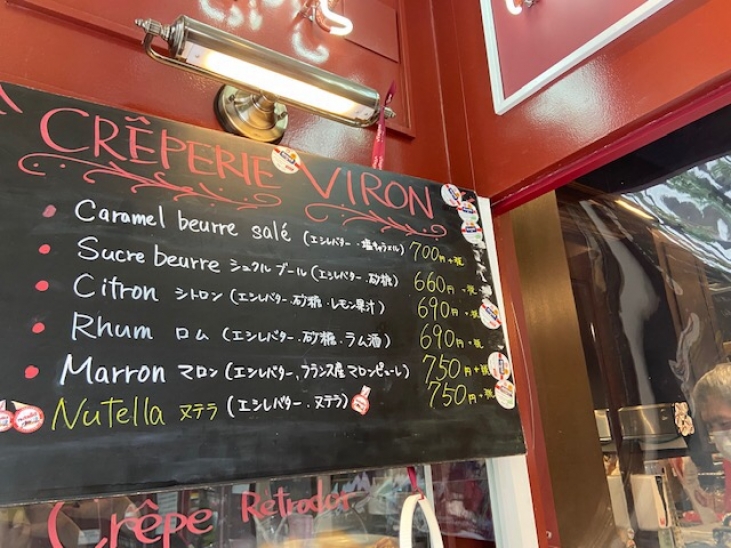 CRÊPERIE VIRON
Caramel beurre salé (エシレバター・塩キャラメル) 700円+税
Sucre beurre シュクル ブール (エシレバター・砂糖) 660円+税
Citron シトロン (エシレバター・砂糖・レモン果汁) 690円+税
Rhum ロム (エシレバター・砂糖・ラム酒) 690円+税
Marron マロン (エシレバター、フランス産マロンピューレ) 750円+税
Nutella ヌテラ (エシレバター・ヌテラ) 750円+税
Crêpe Retrodor